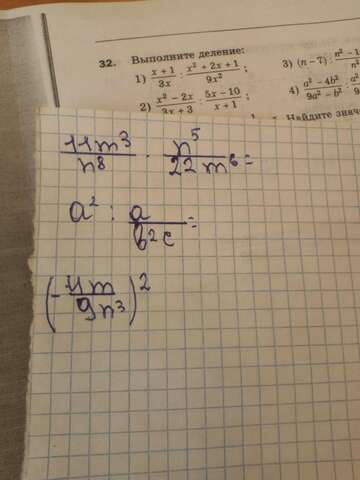 32. Выполните деление:
1) \frac{x+1}{3x} : \frac{x²+2x+1}{9x²};
3) (n-7) : \frac{n²-1}{n²}
2) \frac{x²-2x}{3x+3} : \frac{5x-10}{x+1};
4) \frac{a²-4b²}{9a²-b²} : \frac{a²}{9}
Найдите знач
\frac{11m³}{n⁸} · \frac{n⁵}{22m⁶} =
a² : \frac{a}{b²c} =
(-\frac{4m}{9n³})²